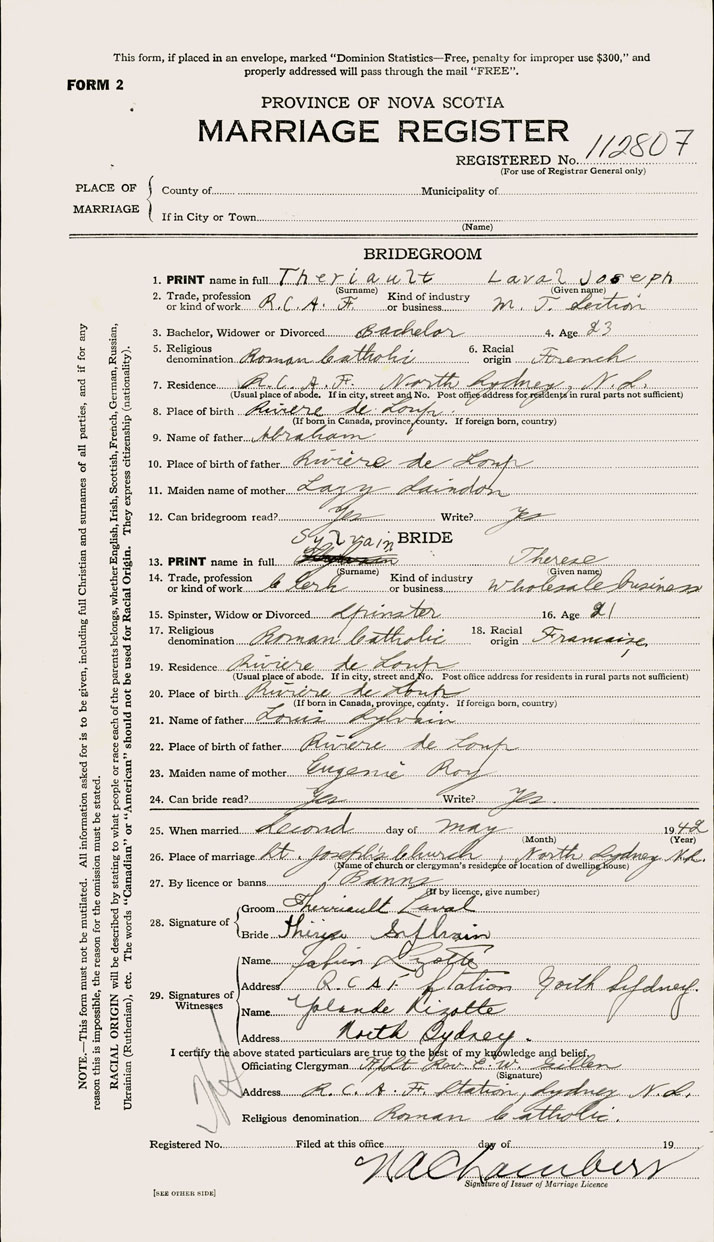 This form, if placed in an envelope, marked "Dominion Statistics—Free, penalty for improper use $300," and
properly addressed will pass through the mail "FREE".
FORM 2
PROVINCE OF NOVA SCOTIA
MARRIAGE REGISTER
REGISTERED No. 112807
(For use of Registrar General only)
PLACE OF MARRIAGE
County of Municipality of
If in City or Town
(Name)
BRIDEGROOM
1. PRINT name in full Theriault Laval Joseph
(Surname) (Given name)
2. Trade, profession or kind of work R.C.A.F. Kind of industry or business M. T. Section
3. Bachelor, Widower or Divorced Bachelor 4. Age 23
5. Religious denomination Roman Catholic 6. Racial origin French
7. Residence R.C.A.F. North Sydney, N.S.
(Usual place of abode. If in city, street and No. Post office address for residents in rural parts not sufficient)
8. Place of birth Rivière de Loup.
(If born in Canada, province, county. If foreign born, country)
9. Name of father Abraham
10. Place of birth of father Rivière de Loup
11. Maiden name of mother Lazy Saindon
12. Can bridegroom read? Yes Write? Yes
BRIDE
13. PRINT name in full Sylvain Therese
(Surname) (Given name)
14. Trade, profession or kind of work Clerk Kind of industry or business Wholesale business
15. Spinster, Widow or Divorced Spinster 16. Age 21
17. Religious denomination Roman Catholic 18. Racial origin Francaise
19. Residence Rivière de Loup
(Usual place of abode. If in city, street and No. Post office address for residents in rural parts not sufficient)
20. Place of birth Rivière de Loup
(If born in Canada, province, county. If foreign born, country)
21. Name of father Louis Sylvain
22. Place of birth of father Rivière de Loup
23. Maiden name of mother Eugenie Roy
24. Can bride read? Yes Write? Yes.
25. When married Second day of May 1942
(Month) (Year)
26. Place of marriage St. Joseph's Church, North Sydney N.S.
(Name of church or clergyman's residence or location of dwelling house)
27. By licence or banns Banns
(If by licence, give number)
28. Signature of
Groom Therriault Laval
Bride Thérèse Sylvain
29. Signatures of Witnesses
Name Lizotte
Address R.C.A.F Station North Sydney.
Name Yolande Rizotte
Address North Sydney.
I certify the above stated particulars are true to the best of my knowledge and belief.
Officiating Clergyman F/Lt Rev. E. W. Gillen
(Signature)
Address R.C.A.F. Station, Sydney N.S.
Religious denomination Roman Catholic.
Registered No. Filed at this office day of 19
Chambers
Signature of Issuer of Marriage Licence
[SEE OTHER SIDE]
NOTE.—This form must not be mutilated. All information asked for is to be given, including full Christian and surnames of all parties, and if for any
reason this is impossible, the reason for the omission must be stated.
RACIAL ORIGIN will be described by stating to what people or race each of the parents belongs, whether English, Irish, Scottish, French, German, Russian,
Ukrainian (Ruthenian), etc. The words "Canadian" or "American" should not be used for Racial Origin. They express citizenship (nationality).